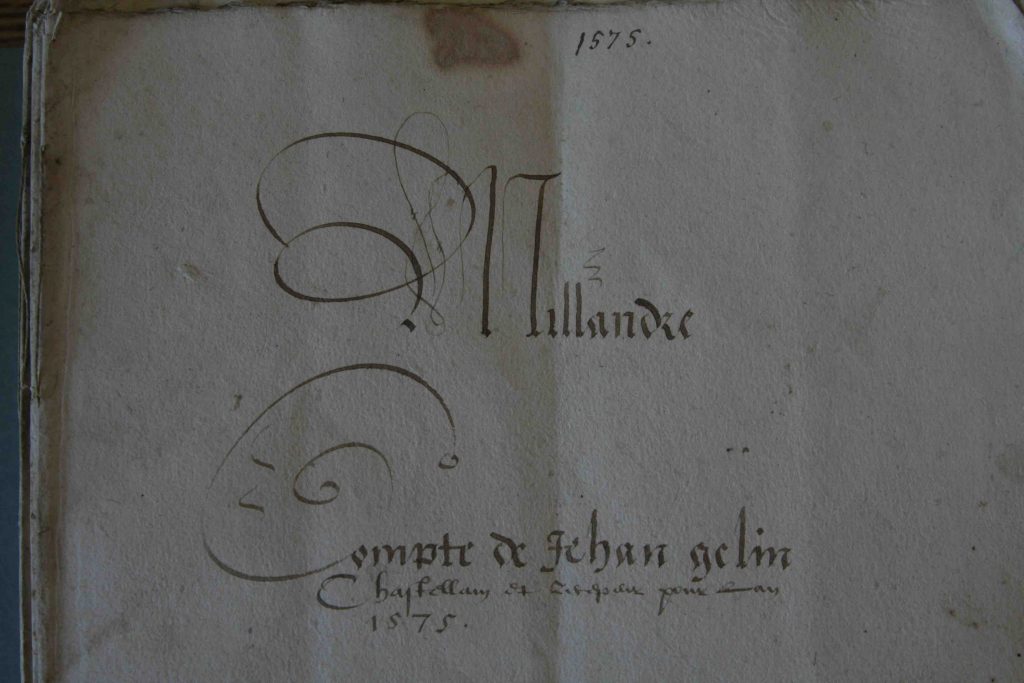 1575.
Millandre
Compte de Jehan gelin
Chastellain et pour Lan
1575.